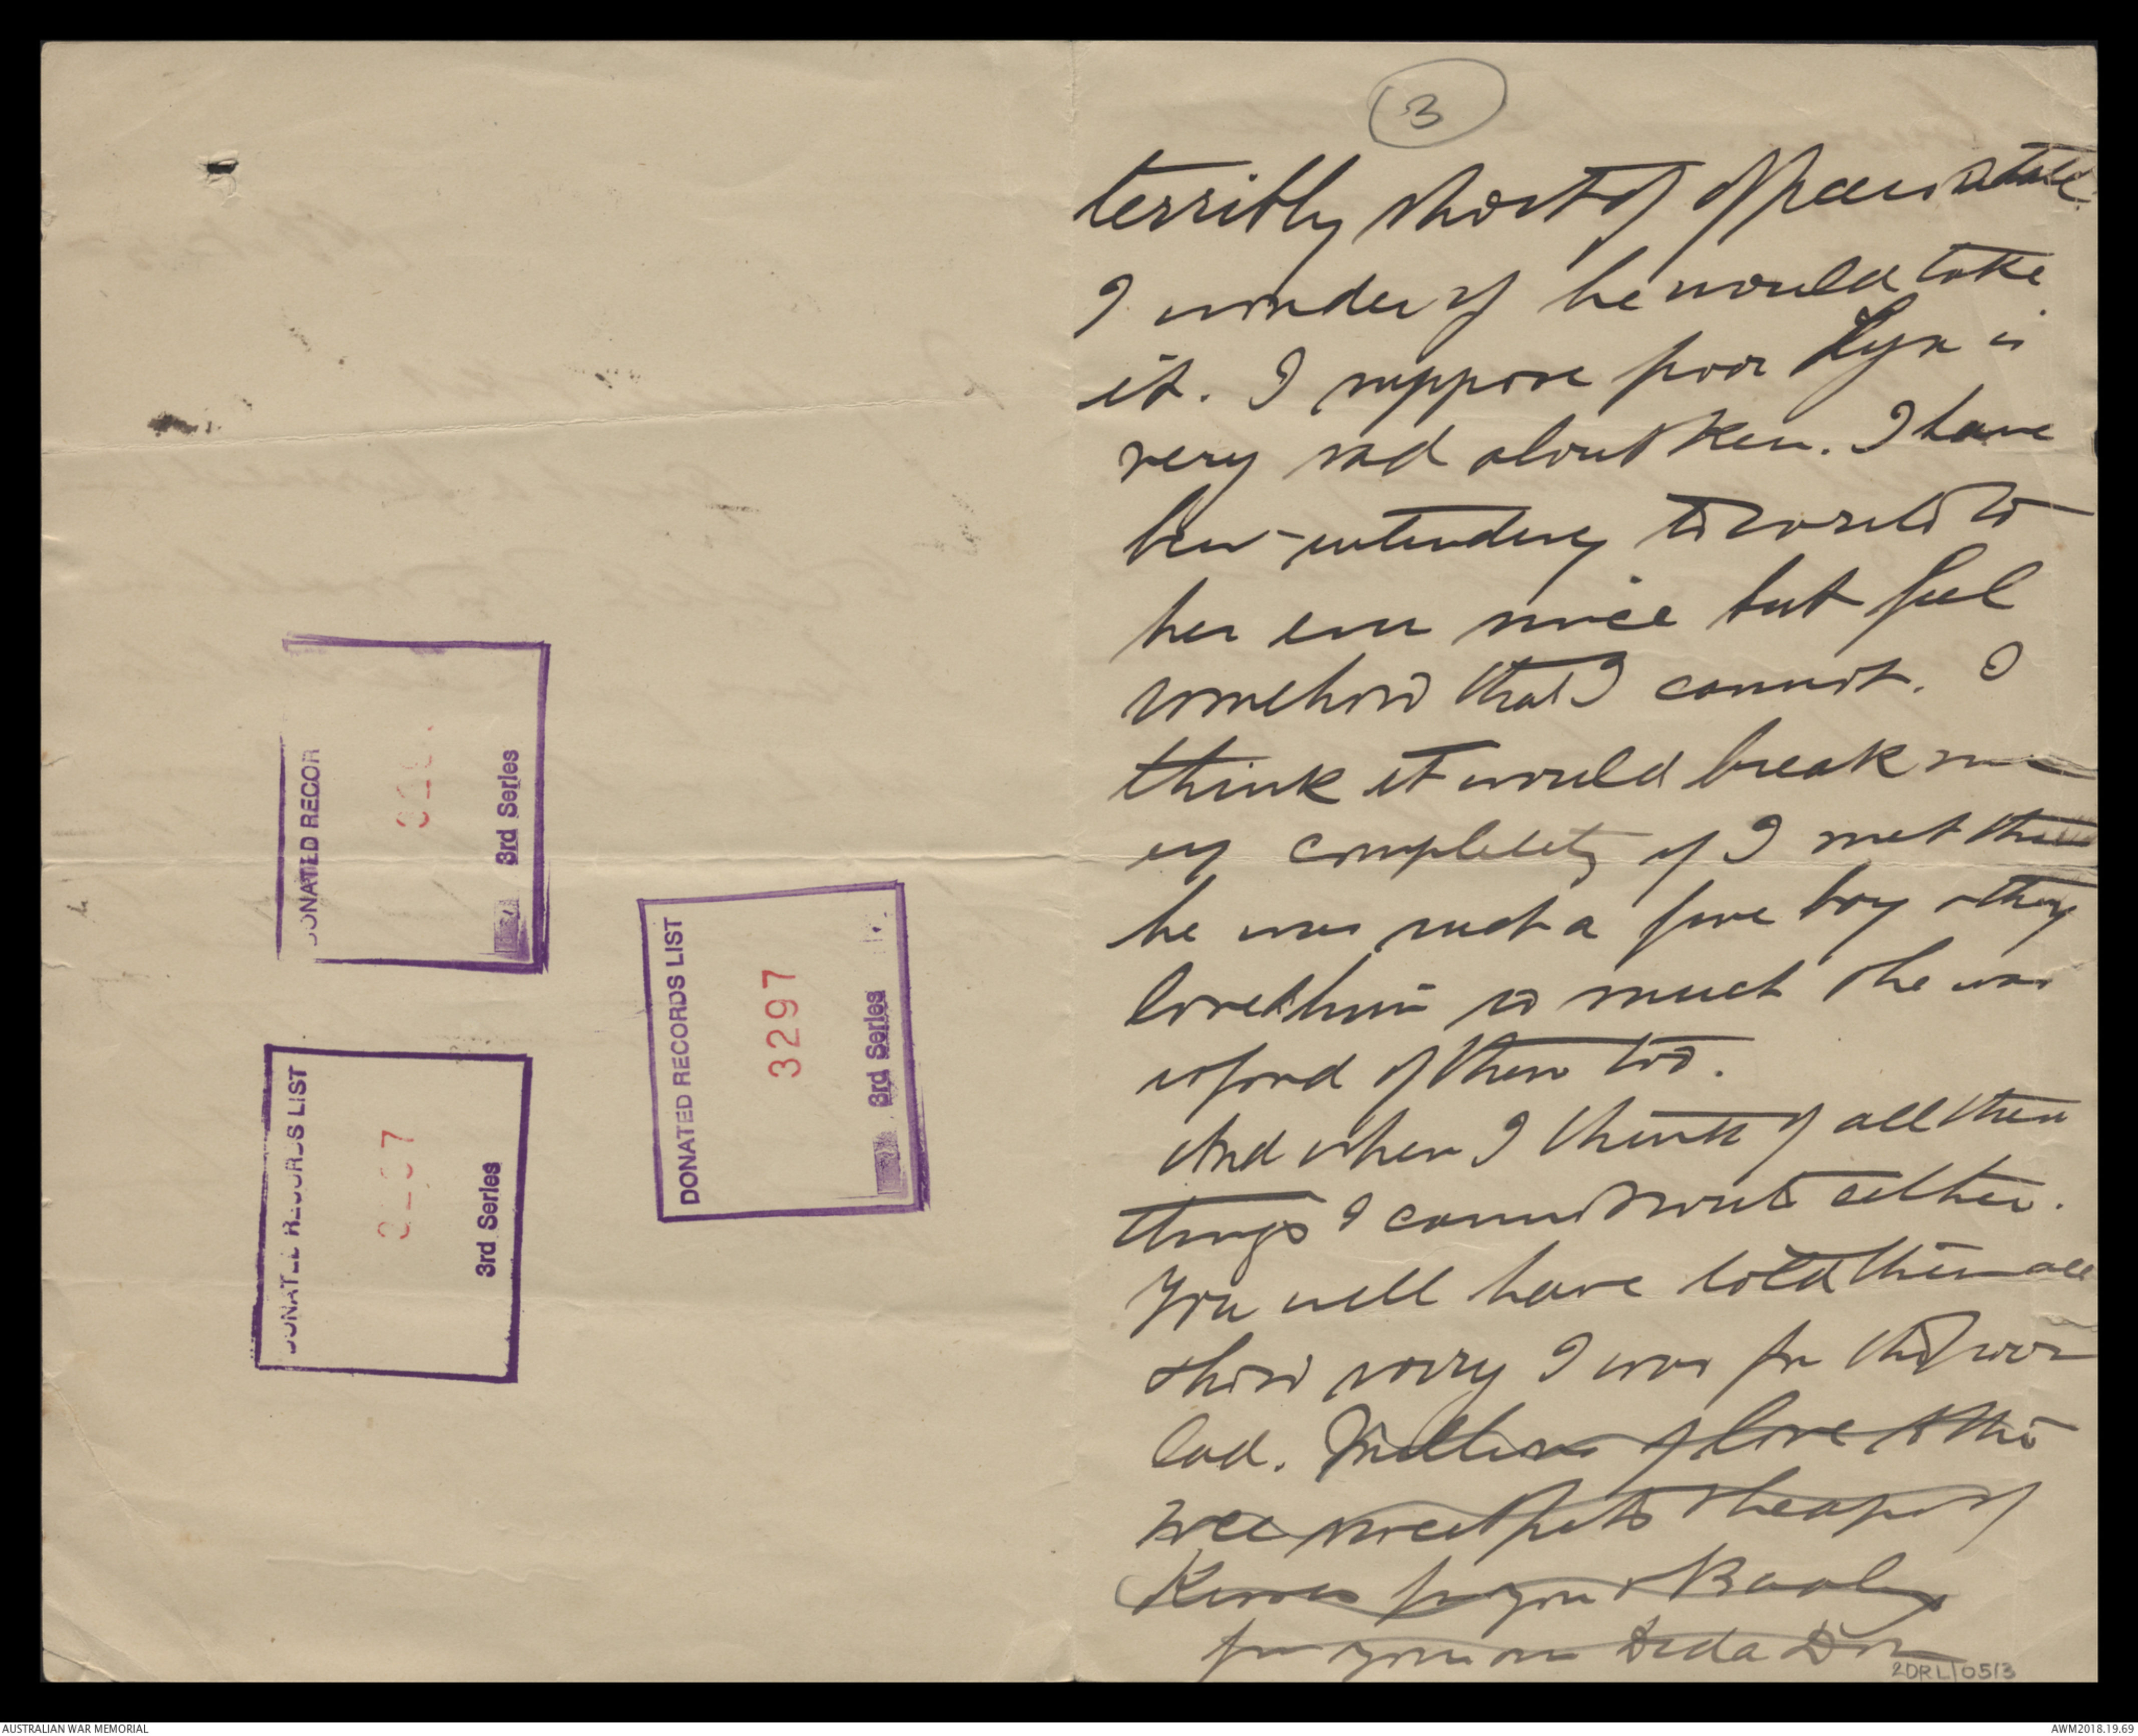 3
terribly short of officers & tall
I wonder if he would take
it. I suppose poor Lyn is
very sad about Ken. I have
been intending to write to
her ever since but feel
somehow that I cannot. I
think it would break me
up completely if I met them
he was such a fine boy & they
loved him so much & he was
so fond of them too.
And when I think of all these
things I cannot write either.
You will have told them all
& how sorry I was for the poor
lad. Millions of love to the
wee sweet pets & heaps of
Kisses for you &
from your own Dida
2DRL/0513
DONATED RECOR
3rd Series
DONATED RECORDS LIST
3297
3rd Series
DONATED RECORDS LIST
3297
3rd Series
AUSTRALIAN WAR MEMORIAL
AWM2018.19.69